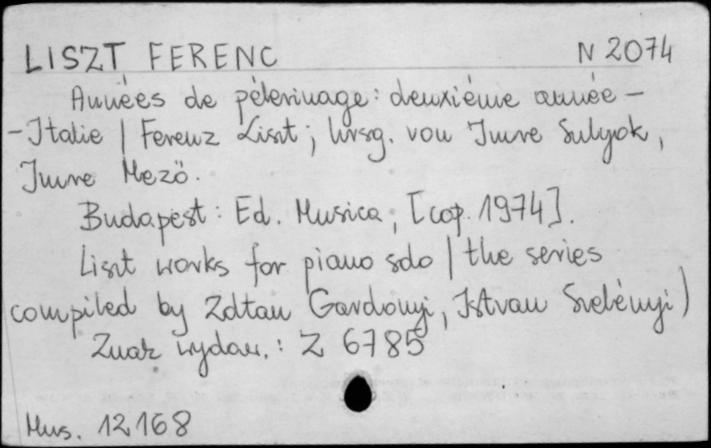 LISZT FERENC N 2074
Années de pélerinage: deuxiéme année –
– Italie / Ferenz Liszt; hrsg. von Imre Sulyok,
Imre Mezö.
Budapest: Ed. Musica, [cop. 1974].
Liszt works for piano solo / the series
compiled by Zoltan Gardonyi, Istvan Szelényi)
Znak wydaw.: Z 6785
Mus. 12168